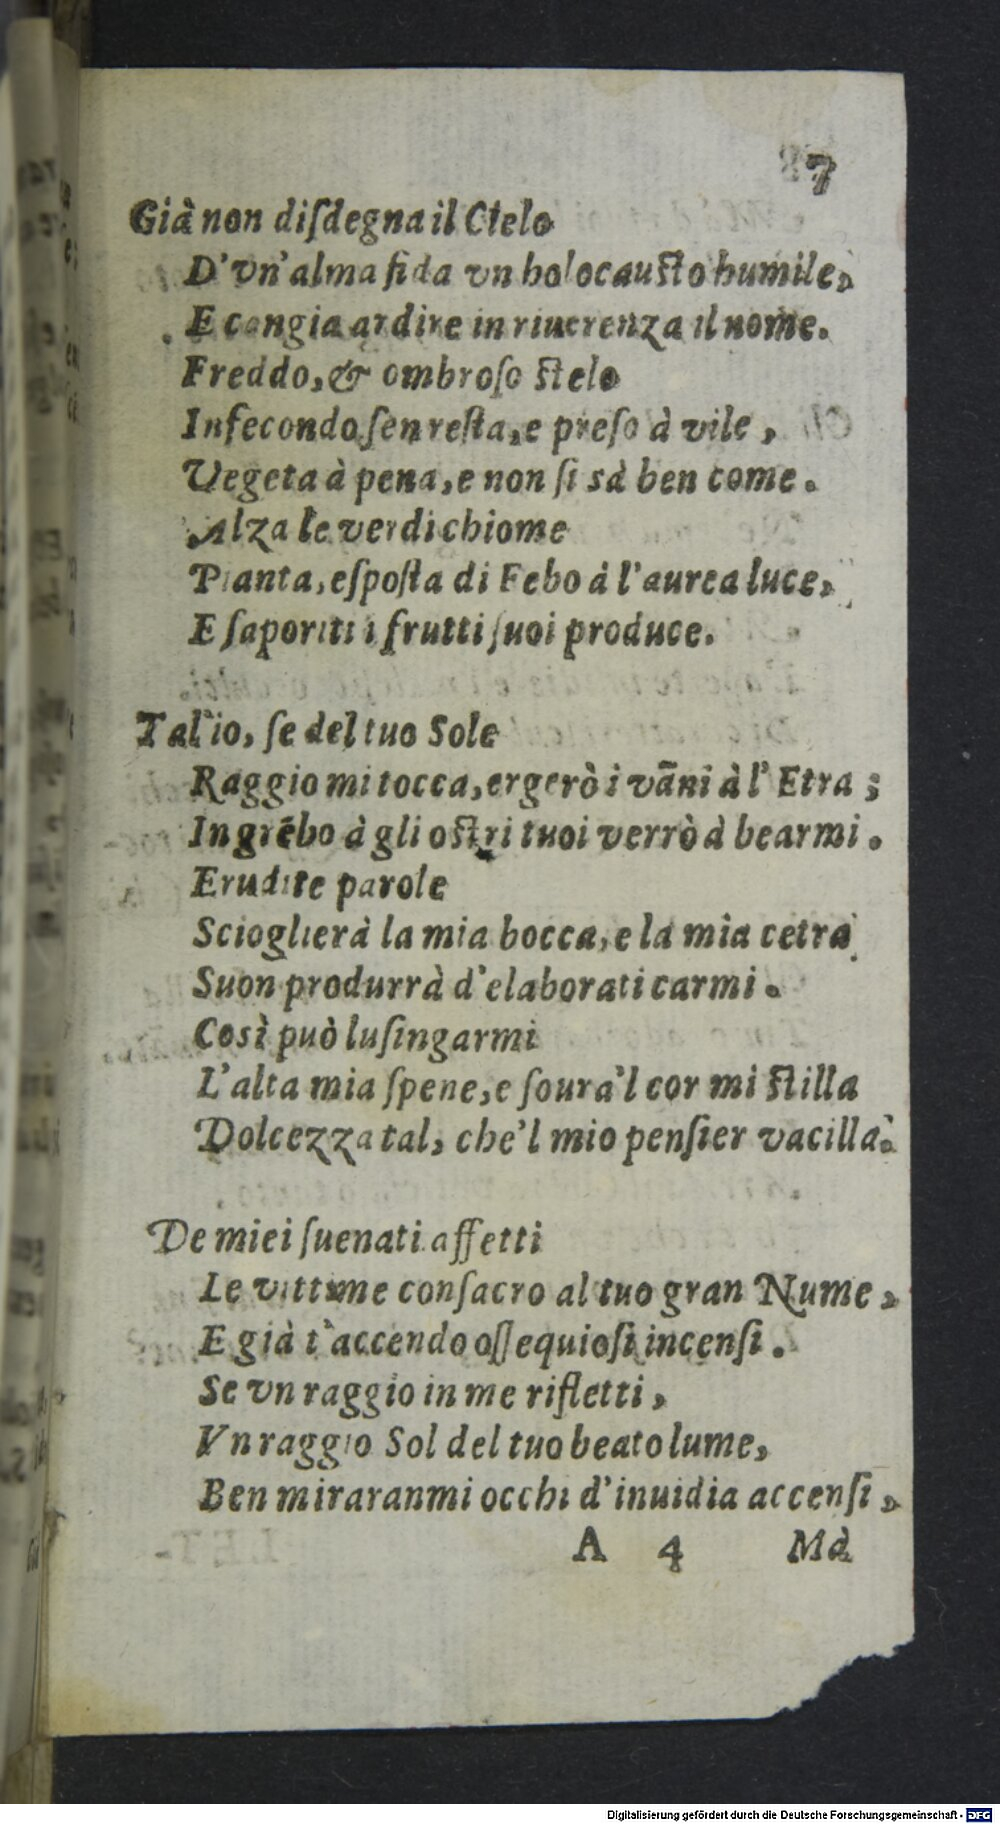 7
Già non diſdegna il Cielo
D'vn'alma fida vn holocauſto humile,
E cangia ardire in riuerenza il nome.
Freddo, & ombroſo ſtelo
Infecondo ſen reſta, e preſo à vile,
Vegeta à pena, e non ſi sà ben come.
Alza le verdi chiome
Pianta, eſpoſta di Febo à l'aurea luce,
E ſaporiti i frutti ſuoi produce.
Tal'io, ſe del tuo Sole
Raggio mi tocca, ergerò i vāni à l'Etra;
In grēbo à gli oſtri tuoi verrò à bearmi.
Erudite parole
Scioglierà la mia bocca, e la mia cetra
Suon produrrà d'elaborati carmi.
Così può luſingarmi
L'alta mia ſpene, e ſoura'l cor mi ſtilla
Dolcezza tal, che'l mio penſier vacilla.
De miei ſuenati affetti
Le vittime conſacro al tuo gran Nume,
E già t'accendo oſſequioſi incenſi.
Se vn raggio in me rifletti,
Vn raggio Sol del tuo beato lume,
Ben miraranmi occhi d'inuidia accenſi,
A 4 Mà
Digitalisierung gefördert durch die Deutsche Forschungsgemeinschaft - DFG